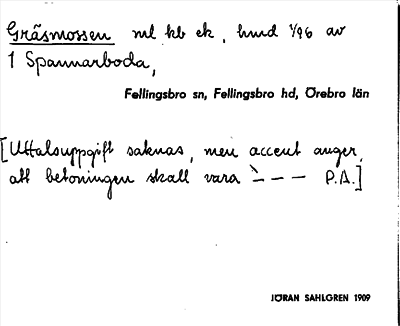 Gräsmossen ml kb ek, hmd 1/96 av
1 Spannarboda,
Fellingsbro sn, Fellingsbro hd, Örebro län
[Uttalsuppgift saknas, men accent anger,
att betoningen skall vara `– – – P.A.]
JÖRAN SAHLGREN 1909